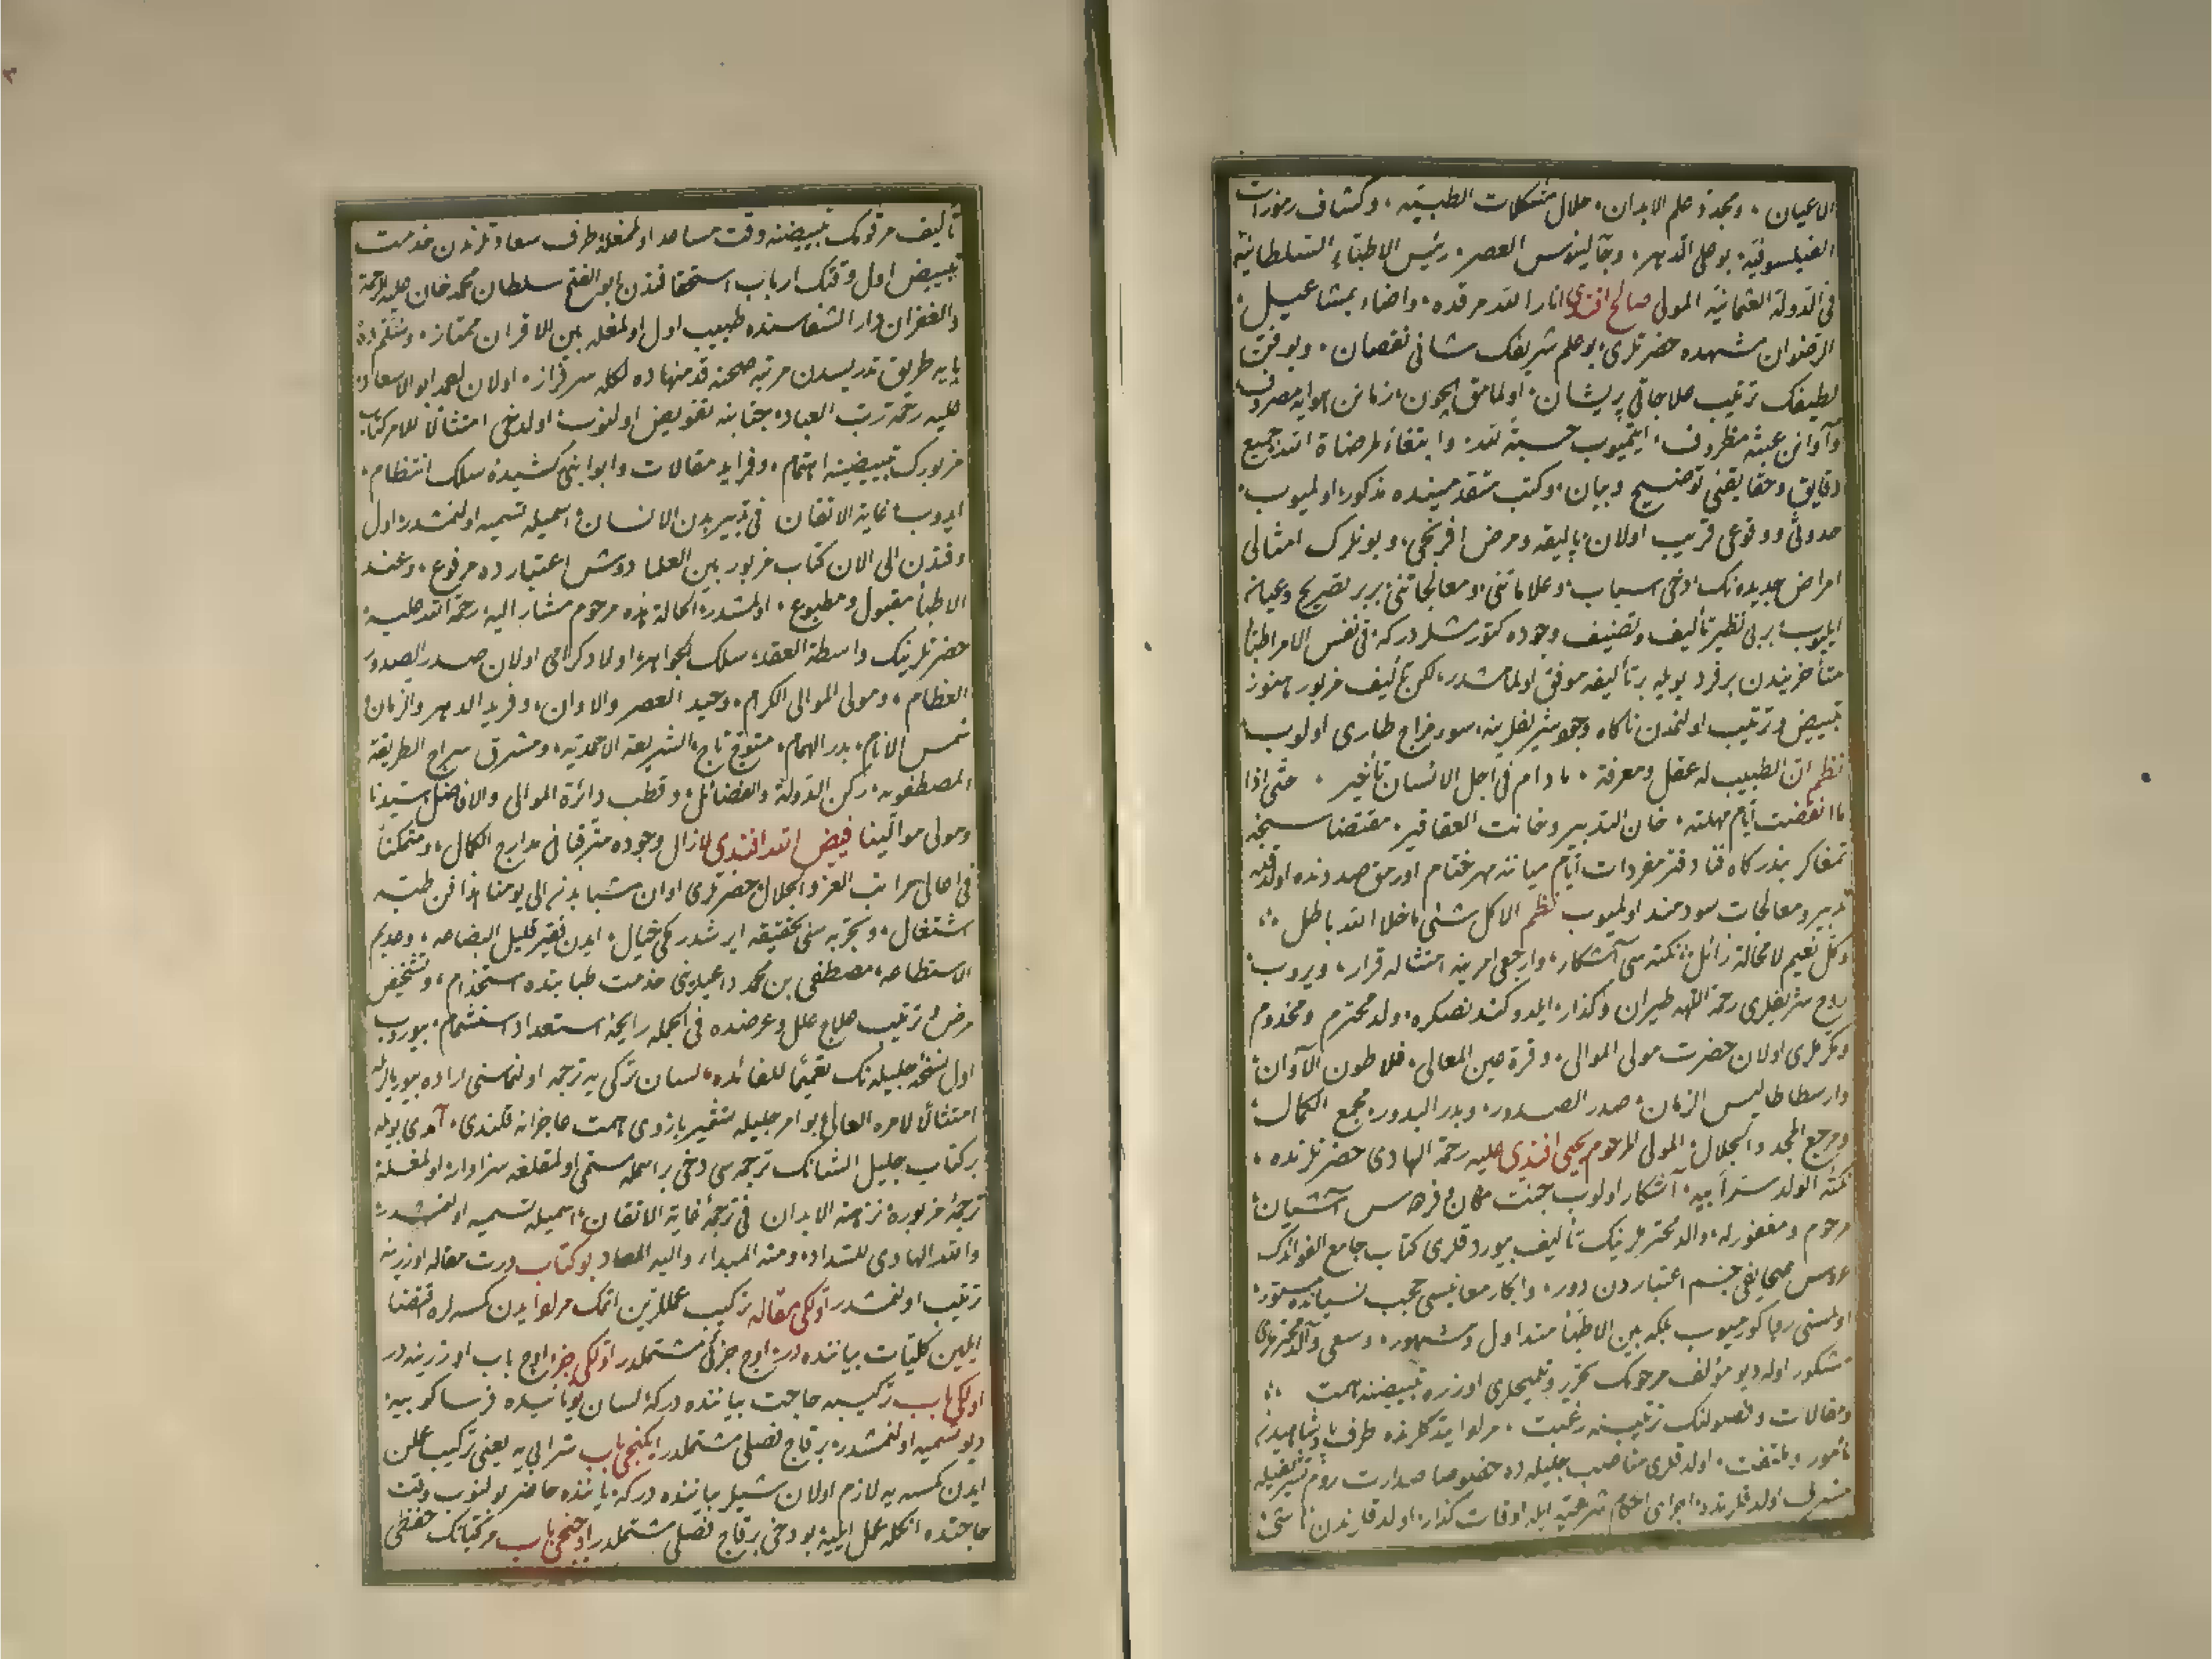 الاعيان، ومجدد علم الابدان، حلال مشكلات الطبيه، وكشاف رموزات
الفيلسوفيه، بوعلى الدهر، وجالينوس العصر، رئيس الاطباء السلطانية
فى الدولة العثمانية المولى صالح افندى انار الله مرقده، واضاء بمشاعيل
الرضوان مشهده حضرتلرى، بو علم شريفك شانى نقصان، وبو فن
لطيفك ترتيب علاجاتى پريشان، اولمامق ايچون، زمانن هوايه مصروف
وآوانن عبثه مظروف، ايتميوب حسبة لله، وابتغاء لمرضاة الله جميع
دقايق وحقايقنى توضيح وبيان، وكتب متقدمينده مذكور، اولميوب،
حدوثى ووقوعى قريب اولان، پاليقه ومرض افرنجى، وبونلرك امثالى
امراض جديده نك دخى اسباب، وعلاماتنى، ومعالجاتنى، برر بر تصريح وعيان
ايليوب، بر بى نظير تأليف وتصنيف وجوده كتورمشلردركه، فى نفس الامر اطباء
متأخريندن بر فرد بويله بر تأليفه موفق اولمامشدر، لكن تأليف مزبور هنوز
تبييض وترتيب اولنمدن ناكاه وجود شريفلرينه، سوء مزاج طارى اولوب
نظم ان الطبيب له عقل ومعرفة، مادام فى اجل الانسان تأخير، حتى اذا
ما انقضت ايام مهلته، خان التدبير وخانت العقاقير، مقتضاسنجه
دفتر مفردات ايام حياتنه مهر ختام اورمق صددنده اولدقده
تدبير ومعالجات سودمند اولميوب نظم الا كل شئ ما خلا الله باطل
وكل نعيم لا محالة زائل، نكته سى آشكار، وارجعى امرينه امتثاله قرار، ويروب
روح شريفلرى رحمة اللهه طيران وكذار، ايلدوكندنصكره، ولد محترم ومخدوم
مكرملرى اولان حضرت مولى الموالى، وقرة عين المعالى، فلاطون الآوان
وارسطاطاليس الزمان، صدر الصدور، وبدر البدور، مجمع الكمال
ومرجع المجد والجلال، المولى المرحوم يحيى افندى عليه رحمة الهادى حضرتلرنده،
نكتهٔ الولد سر أبيه، آشكار اولوب جنت مكان، فردوس آشيان
مرحوم ومغفور له، والد محترملرينك تأليف بيوردقلرى كتاب جامع الفوائدك
عروس چشم اعتباردن دور، وابكار معانيسى حجب نسيانده مستور
اولمسنى روا كورميوب بلكه بين الاطباء متداول ومشهور، وسعى والد محترملرى
مشكور اوله ديو مؤلف مرحومك تحرير اوزره تبييضنه همت
ومقالات وفصولنك ترتيبنه رغبت، مراد ايتدكلرنده طرف پادشاهيدن
مأمور وملتفت، اولدقلرى مناصب جليله ده خصوصا صدارت روم تشريفيله
مشرف اولدقلرنده، اجراى احكام شرعيه ايله اوقات كذار، اولدقلرندن ناشى
تأليف مرقومك تبييضنه وقت مساعد اولمغله طرف سعادتلرندن خدمت
تبييض اول وقتك ارباب استحقاقندن ابو الفتح سلطان محمد خان عليه الرحمة
والغفران دار الشفاسنده طبيب اول اولمغله بين الاقران ممتاز،
پايه طريق تدريسدن مرتبه صحنه قدمنهاده لكله سرفراز، اولان ابو الاسعاد
عليه رحمة رب العباد، جنابنه تفويض اولنوب، اولدخى امتثالا للامر كتاب
مزبورك تبييضينه اهتمام، وفرايد مقالات وابوابنى كشيدهٔ سلك انتظام،
ايدوب، غاية الاتقان فى تدبير بدن الانسان، اسميله تسميه اولنمشدر، اول
وقتدن الى الان كتاب مزبور بين العلما دوش اعتبارده مرفوع، وعند
الاطبا مقبول ومطبوع، اولمشدر، الحالة هذه مرحوم مشار اليه رحمة الله عليه
حضرتلرينك واسطة العقد، سلك الجواهر، اولاد كرامى اولان صدر الصدور
العظام، ومولى الموالى الكرام، وحيد العصر والاوان، وفريد الدهر والزمان
شمس الانام، بدر الهمام، متوج تاج الشريعة الاحمديه، ومشرق سراج الطريقة
المصطفويه، ركن الدولة والفضائل، وقطب دائرة الموالى والافاضل سيدنا
ومولى موالينا فيض الله افندى لازال وجوده مترقيا فى مدارج الكمال، ومتمكنا
فى اعالى مراتب العز والجلال، حضرتلرى اوان شبابدن الى يومنا هذا فن طبه
اشتغال، وتجربه سنى تحقيقه ايرشدرمكى خيال، ايدن فقير قليل البضاعه، وعديم
الاستطاعه، مصطفى بن محمد داعيلرينى خدمت طبابتده استخدام، وتشخيص
مرض وترتيب علاج علل وعرضنده فى الجمله رايحهٔ استعداد استشمام، بيوروب
اول نسخهٔ جليله نك تعميما للفائده، لسان تركى يه ترجمه اولنماسنى اراده بيوردلر
امتثالا لامره العالى بو امر جليله تشمير بازوى همت عاجزانه قلندى، آمدى بويله
بر كتاب جليل الشانك ترجمه سى دخى بر اسمله مسمى اولمقلغه سزاوار، اولمغله
ترجمهٔ مزبوره نزهة الابدان فى ترجمهٔ غاية الاتقان، اسميله تسميه اولنمشدر
والله الهادى للسداد، ومنه المبداء، واليه المعاد بو كتاب درت مقاله اوزرينه
ترتيب اولنمشدر اولكى مقاله تركيب عمللرين اتمك مراد ايدن كسه لره اقتضا
ايلين كليات بياننده در، اوچ جزئى مشتملدر اولكى جزء اوچ باب اوزرينه در
اولكى باب تركيبه حاجت بياننده دركه لسان يونانيده فرماكوبيه
ديو تسميه اولنمشدر، بر قاچ فصلى مشتملدر ايكنجى باب شرابى يه يعنى تركيب عملن
ايدن كمسه يه لازم اولان شيلر بياننده دركه ياننده حاضر بولنوب وقت
حاجتده انكله عمل ايليه، بو دخى بر قاچ فصلى مشتملدر اوچنجى باب مركباتك حفظى